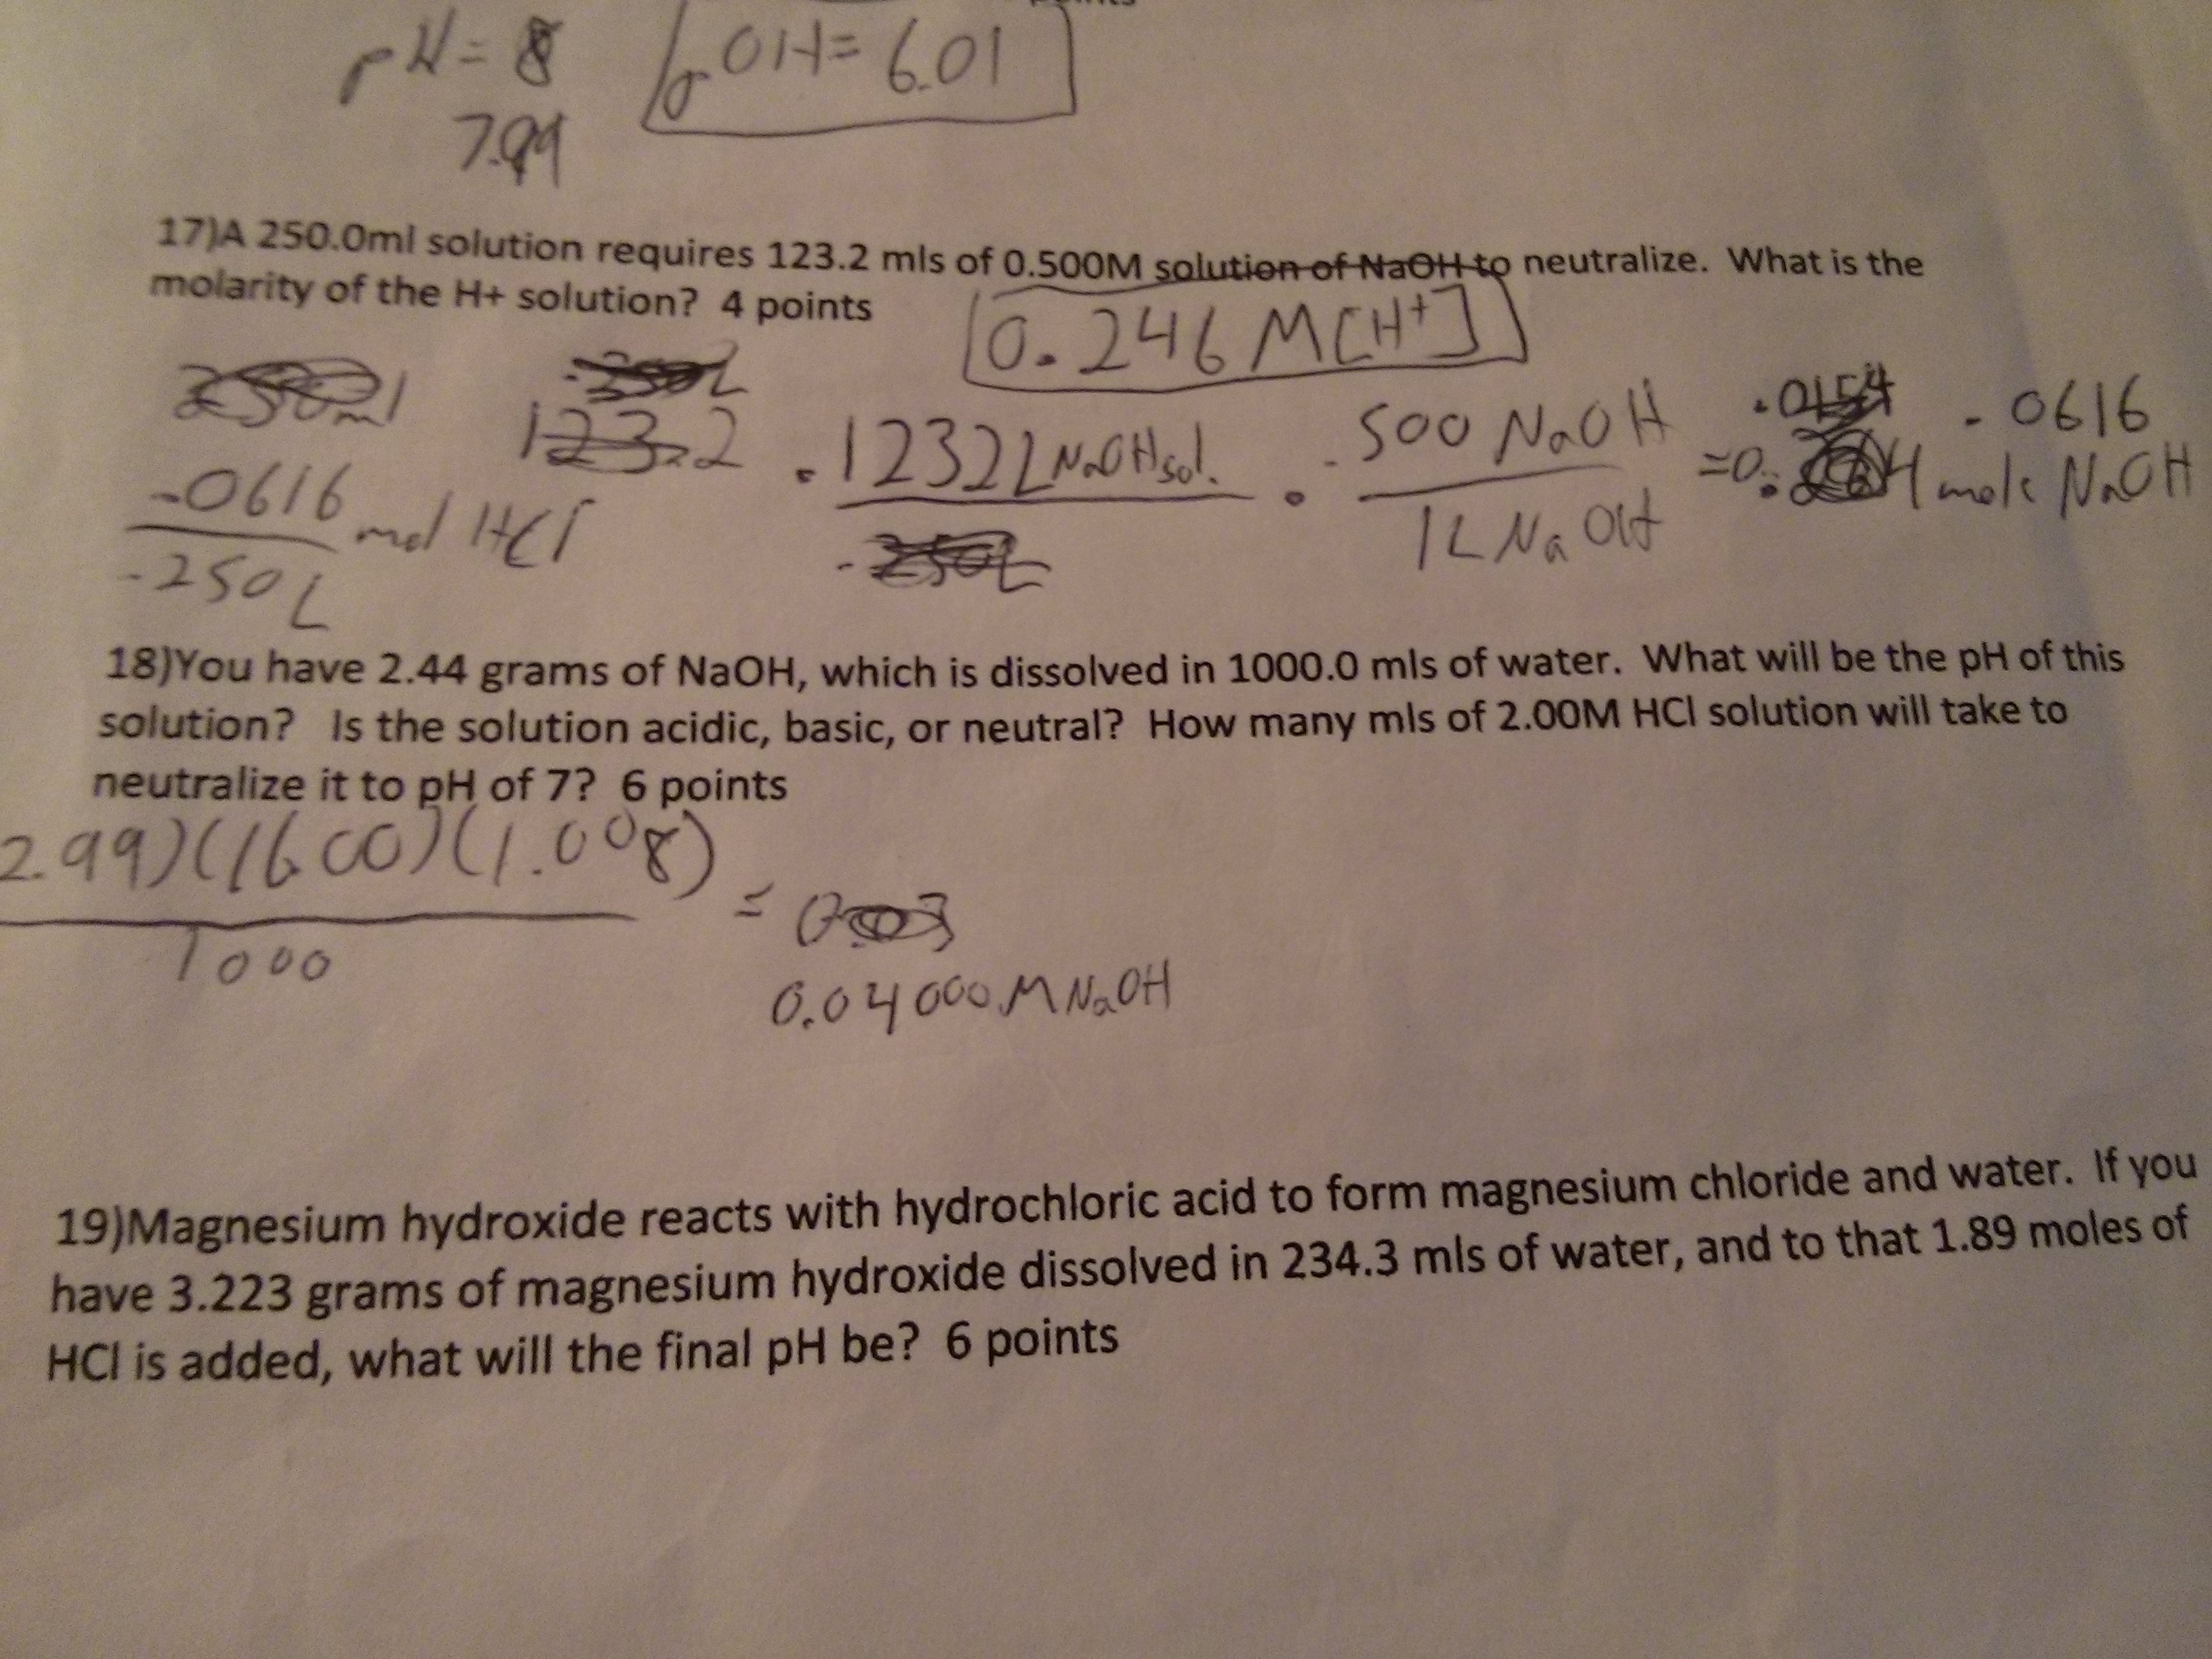 pH = 8 pOH = 6.01
7.99
17)A 250.0ml solution requires 123.2 mls of 0.500M solution of NaOH to neutralize. What is the
molarity of the H+ solution? 4 points
0.246 M [H+]
250ml .250L
123.2 .1232L NaOH sol. . .500 NaOH = 0. mole NaOH .0616
.0616 mol HCl .250L 1L NaOH
.250L
18)You have 2.44 grams of NaOH, which is dissolved in 1000.0 mls of water. What will be the pH of this
solution? Is the solution acidic, basic, or neutral? How many mls of 2.00M HCl solution will take to
neutralize it to pH of 7? 6 points
2.99)(16.00)(1.008) =
1000
0.04000 M NaOH
19)Magnesium hydroxide reacts with hydrochloric acid to form magnesium chloride and water. If you
have 3.223 grams of magnesium hydroxide dissolved in 234.3 mls of water, and to that 1.89 moles of
HCl is added, what will the final pH be? 6 points